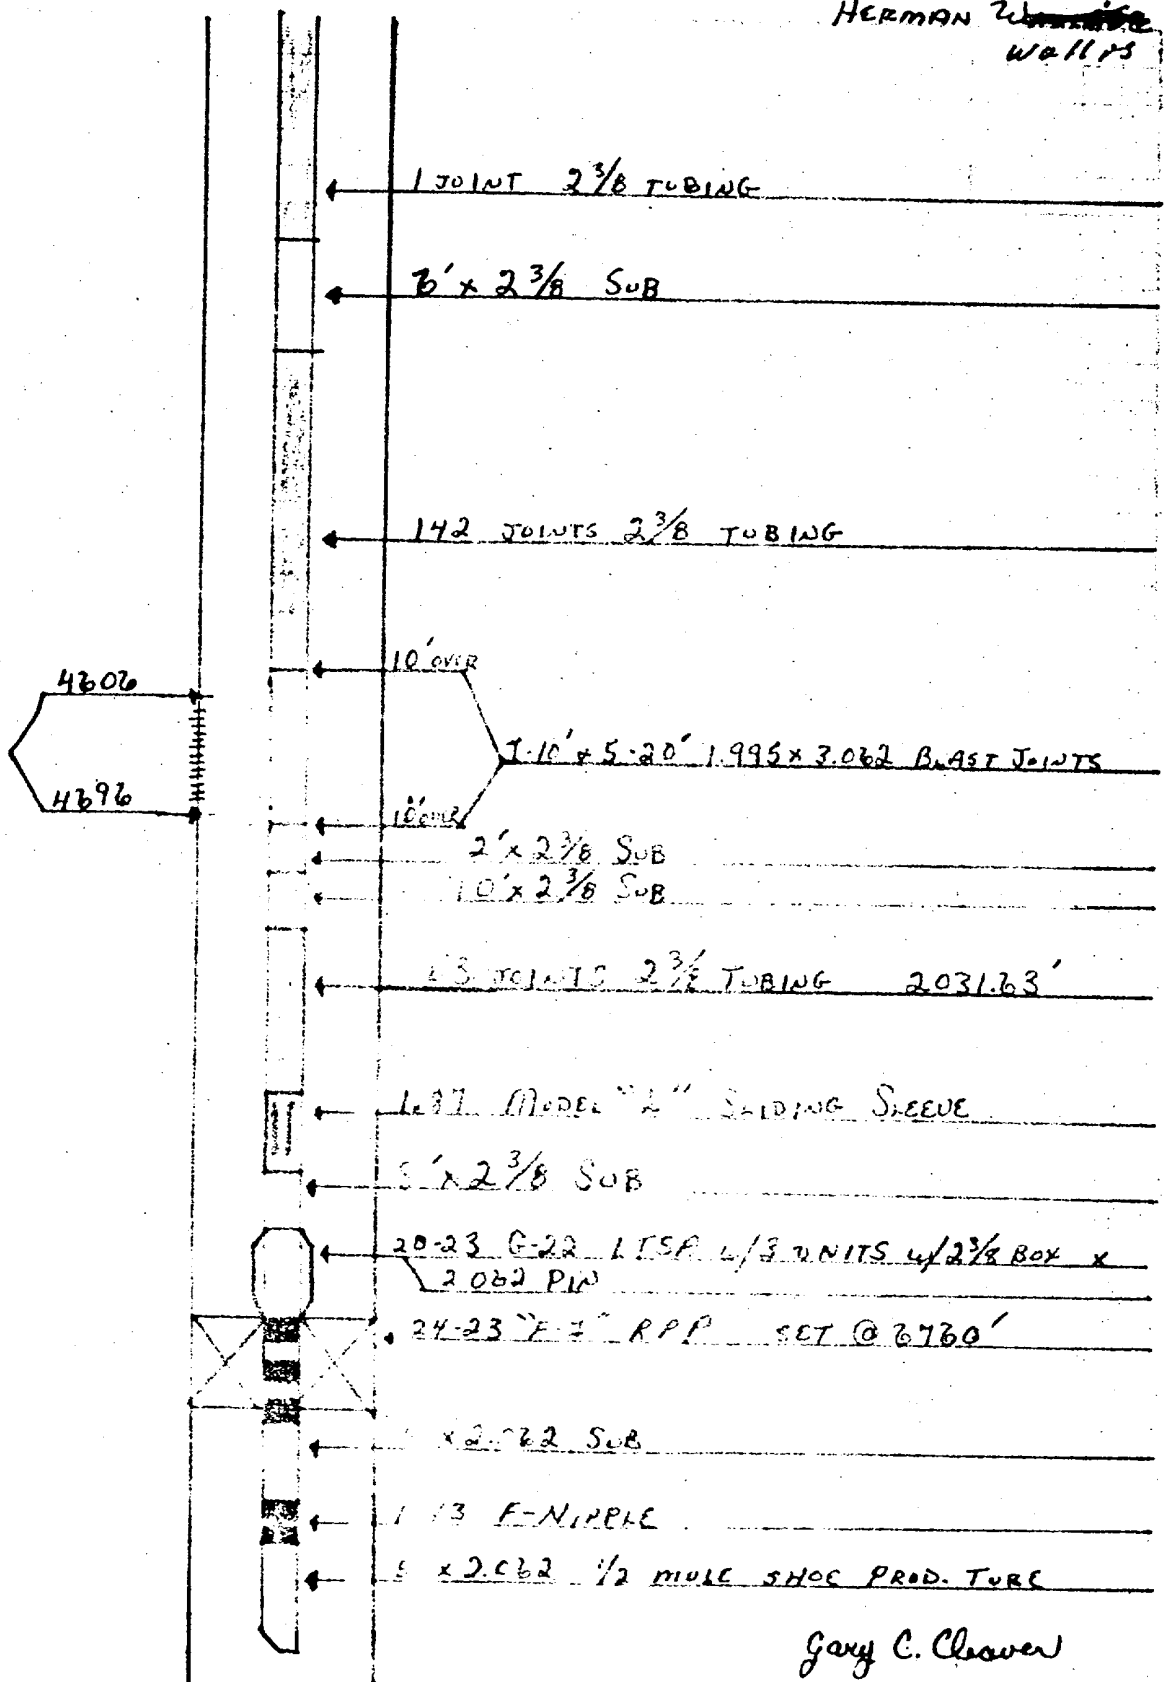 HERMAN
Walls
1 JOINT 2 3/8 TUBING
6' x 2 3/8 SUB
142 JOINTS 2 3/8 TUBING
10' OVER
4606
1-10' & 5-20' 1.995 x 3.062 BLAST JOINTS
4696
10' OVER
2' x 2 3/8 SUB
10' x 2 3/8 SUB
63 JOINTS 2 3/8 TUBING 2031.63'
1.87 MODEL "L" SLIDING SLEEVE
x 2 3/8 SUB
20-23 G-22 LTSA w/3 UNITS w/2 3/8 BOX x
2.062 PIN
24-23 RPP SET @ 6760'
x 2.062 SUB
F-NIPPLE
x 2.062 1/2 MULE SHOE PROD. TUBE
Gary C. Cleaver